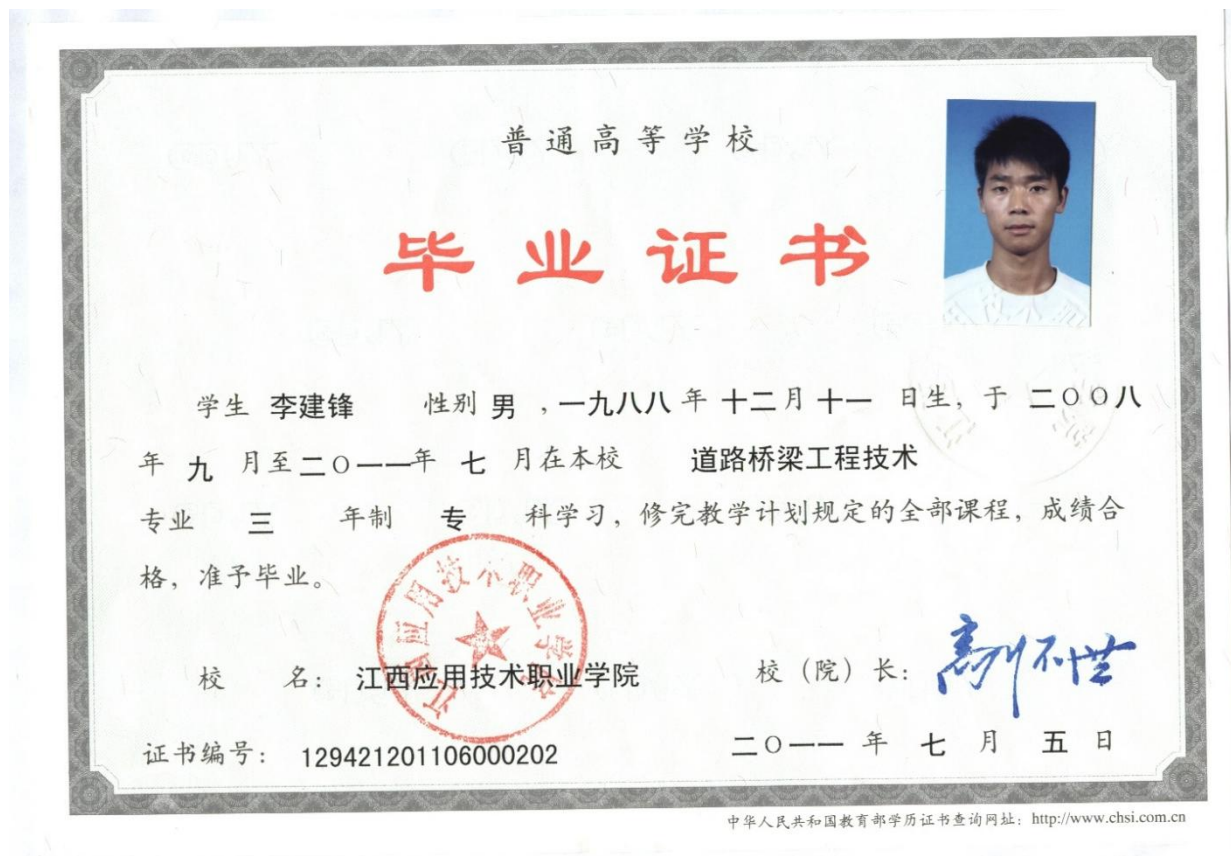 普通高等学校
毕业证书
学生 李建锋 性别 男 ,一九八八 年 十二 月 十一 日生, 于 二○○八
年 九 月至 二○一一 年 七 月在本校 道路桥梁工程技术
专业 三 年制 专 科学习, 修完教学计划规定的全部课程, 成绩合
格, 准予毕业。
江西应用技术职业学院
校 名: 江西应用技术职业学院 校(院)长:
证书编号: 129421201106000202 二○一一 年 七 月 五 日
中华人民共和国教育部学历证书查询网址: http://www.chsi.com.cn